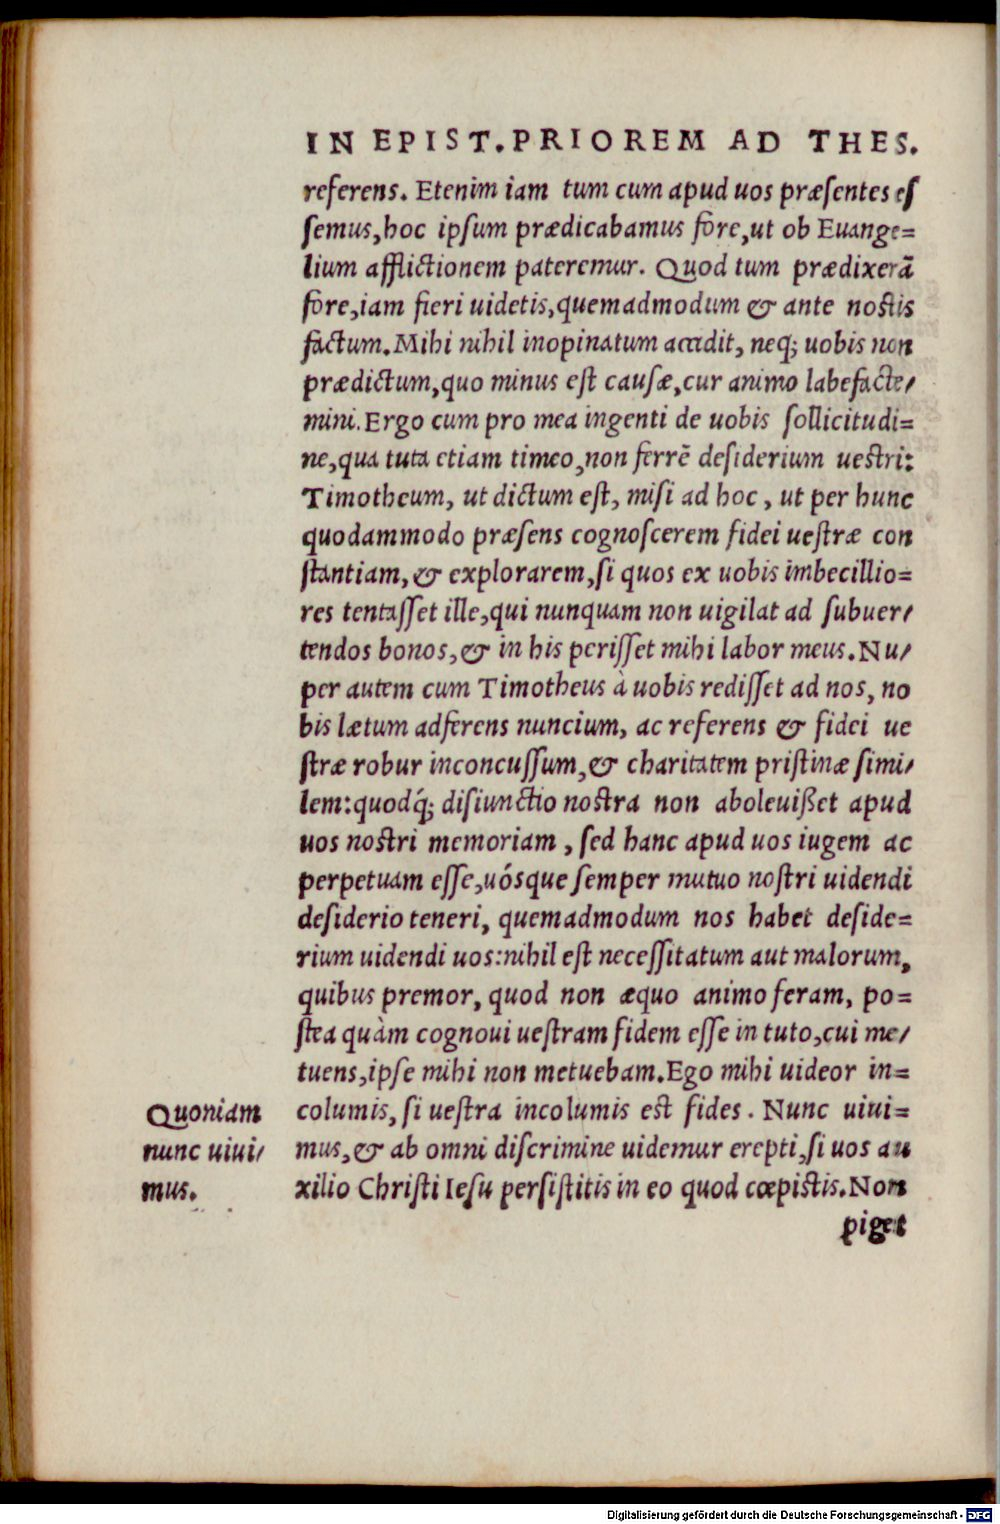 IN EPIST. PRIOREM AD THES.
referens. Etenim iam tum cum apud uos præsentes es
semus, hoc ipsum prædicabamus fore, ut ob Euange=
lium afflictionem pateremur. Quod tum prædixerã
fore, iam fieri uidetis, quemadmodum & ante nostis
factum. Mihi nihil inopinatum accidit, neq; uobis non
prædictum, quo minus est causæ, cur animo labefacte/
mini. Ergo cum pro mea ingenti de uobis sollicitudi=
ne, qua tuta etiam timeo, non ferrẽ desiderium uestri:
Timotheum, ut dictum est, misi ad hoc, ut per hunc
quodammodo præsens cognoscerem fidei uestræ con
stantiam, & explorarem, si quos ex uobis imbecillio=
res tentasset ille, qui nunquam non uigilat ad subuer/
tendos bonos, & in his perisset mihi labor meus. Nu/
per autem cum Timotheus à uobis redisset ad nos, no
bis lætum adferens nuncium, ac referens & fidei ue
stræ robur inconcussum, & charitatem pristinæ simi/
lem: quodq́; disiunctio nostra non aboleuißet apud
uos nostri memoriam, sed hanc apud uos iugem ac
perpetuam esse, uósque semper mutuo nostri uidendi
desiderio teneri, quemadmodum nos habet deside=
rium uidendi uos: nihil est necessitatum aut malorum,
quibus premor, quod non æquo animo feram, po=
stea quàm cognoui uestram fidem esse in tuto, cui me/
tuens, ipse mihi non metuebam. Ego mihi uideor in=
columis, si uestra incolumis est fides. Nunc uiui=
mus, & ab omni discrimine uidemur erepti, si uos au
xilio Christi Iesu persistitis in eo quod cœpistis. Non
piget
Quoniam
nunc uiui/
mus.
Digitalisierung gefördert durch die Deutsche Forschungsgemeinschaft - DFG